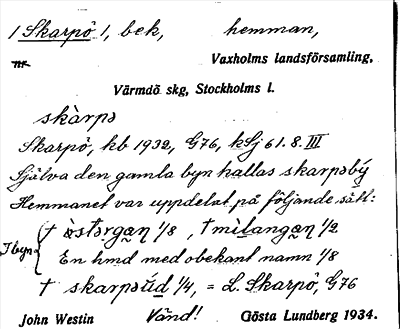 1 Skarpö 1, bek, hemman,
nr
Vaxholms landsförsamling,
Värmdö skg, Stockholms l.
skàrpə
Skarpö, kb 1932, G76, kSj 61.8.III
Själva den gamla byn kallas skarpəbý
Hemmanet var uppdelat på följande sätt:
I byn
† òstərgaŋ 1/8, † mìlangaŋ 1/2
En hmd med obekant namn 1/8
† skarpəúd 1/4, = L. Skarpö, G76
John Westin Vänd! Gösta Lundberg 1934.